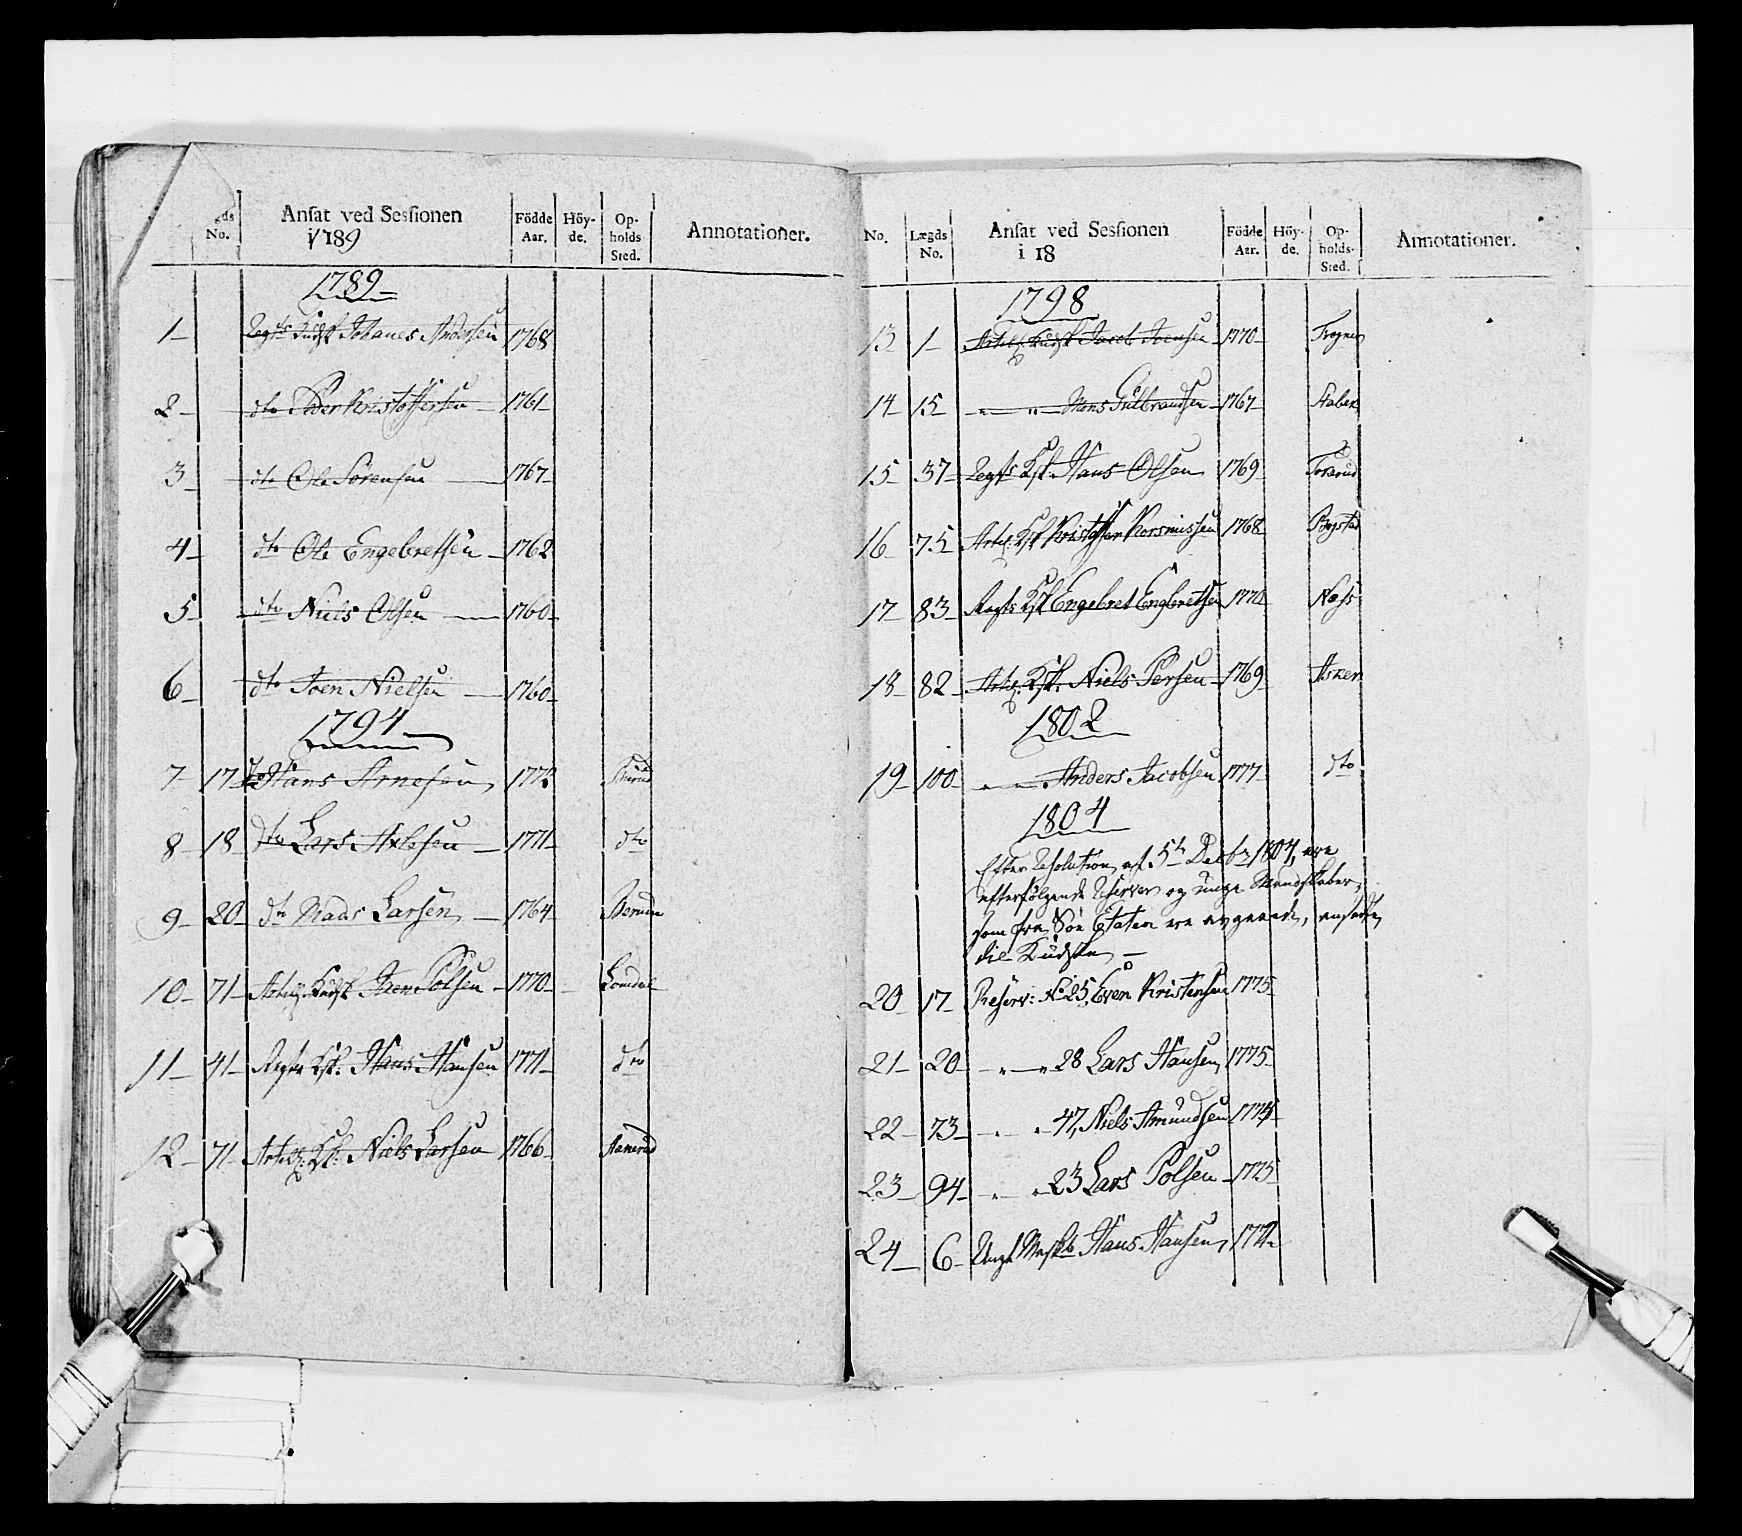 gds No. Ansat ved Sessionen i 1789 Födde Aar. Höy-de. Op-holds Sted. Annotationer.
1789
1 Regts Kudsk Johanes Andersen 1768
2 dto Peder Kristoffersen 1761
3 dto Ole Sörensen 1767
4 dto Ole Engebretsen 1762
5 dto Niels Olsen 1760
6 dto Joen Nielsen 1760
1794
7 17 dto Hans Arnesen 1772
8 18 dto Lars Axlesen 1771 dto
9 20 dto Mads Larsen 1764
10 71 Artil. Kudsk Joen Polsen 1770 Lomdal
11 41 Regts Ksk. Hans Hansen 1771 dto
12 71 Artil. Ksk. Niels Larsen 1766
No. Lægds No. Ansat ved Sessionen i 18 Födde Aar. Höy-de. Op-holds-Sted. Annotationer.
1798
13 1 Artil. Kudsk Jacob Joensen 1770 Frogner
14 15 " " Mons Gulbrandsen 1767 Stabek
15 37 Regts Ksk. Hans Olsen 1769
16 75 Artil. Ksk Kristoffer Rasmussen 1768 Bogstad
17 83 Regts Ksk Engebret Engbretsen 1772 Næss
18 82 Artil. Ksk. Niels Persen 1769 Asker
1802
19 100 " " Anders Jacobsen 1777 dto
1804
Efter Resolution af 5te Decbr 1804, ere
efterfölgende Reserver og unge Mandskaber,
som fra Söe Etaten ere avgaaede, ansatte
til Kudske
20 17 Reserv: No 25, Even Kristensen 1775
21 20 " " 28 Lars Hansen 1775
22 73 " " 47, Niels Amundsen 1774
23 94 " " 23 Lars Polsen 1775
24 6 Ungt Mskb Hans Hansen 1772